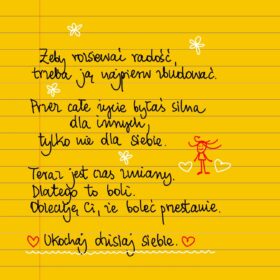 Żeby rozsiewać radość,
trzeba ją najpierw zbudować.
Przez całe życie byłaś silna
dla innych,
tylko nie dla siebie.
Teraz jest czas zmiany.
Dlatego to boli.
Obiecuję Ci, że boleć przestanie.
Ukochaj dzisiaj siebie.